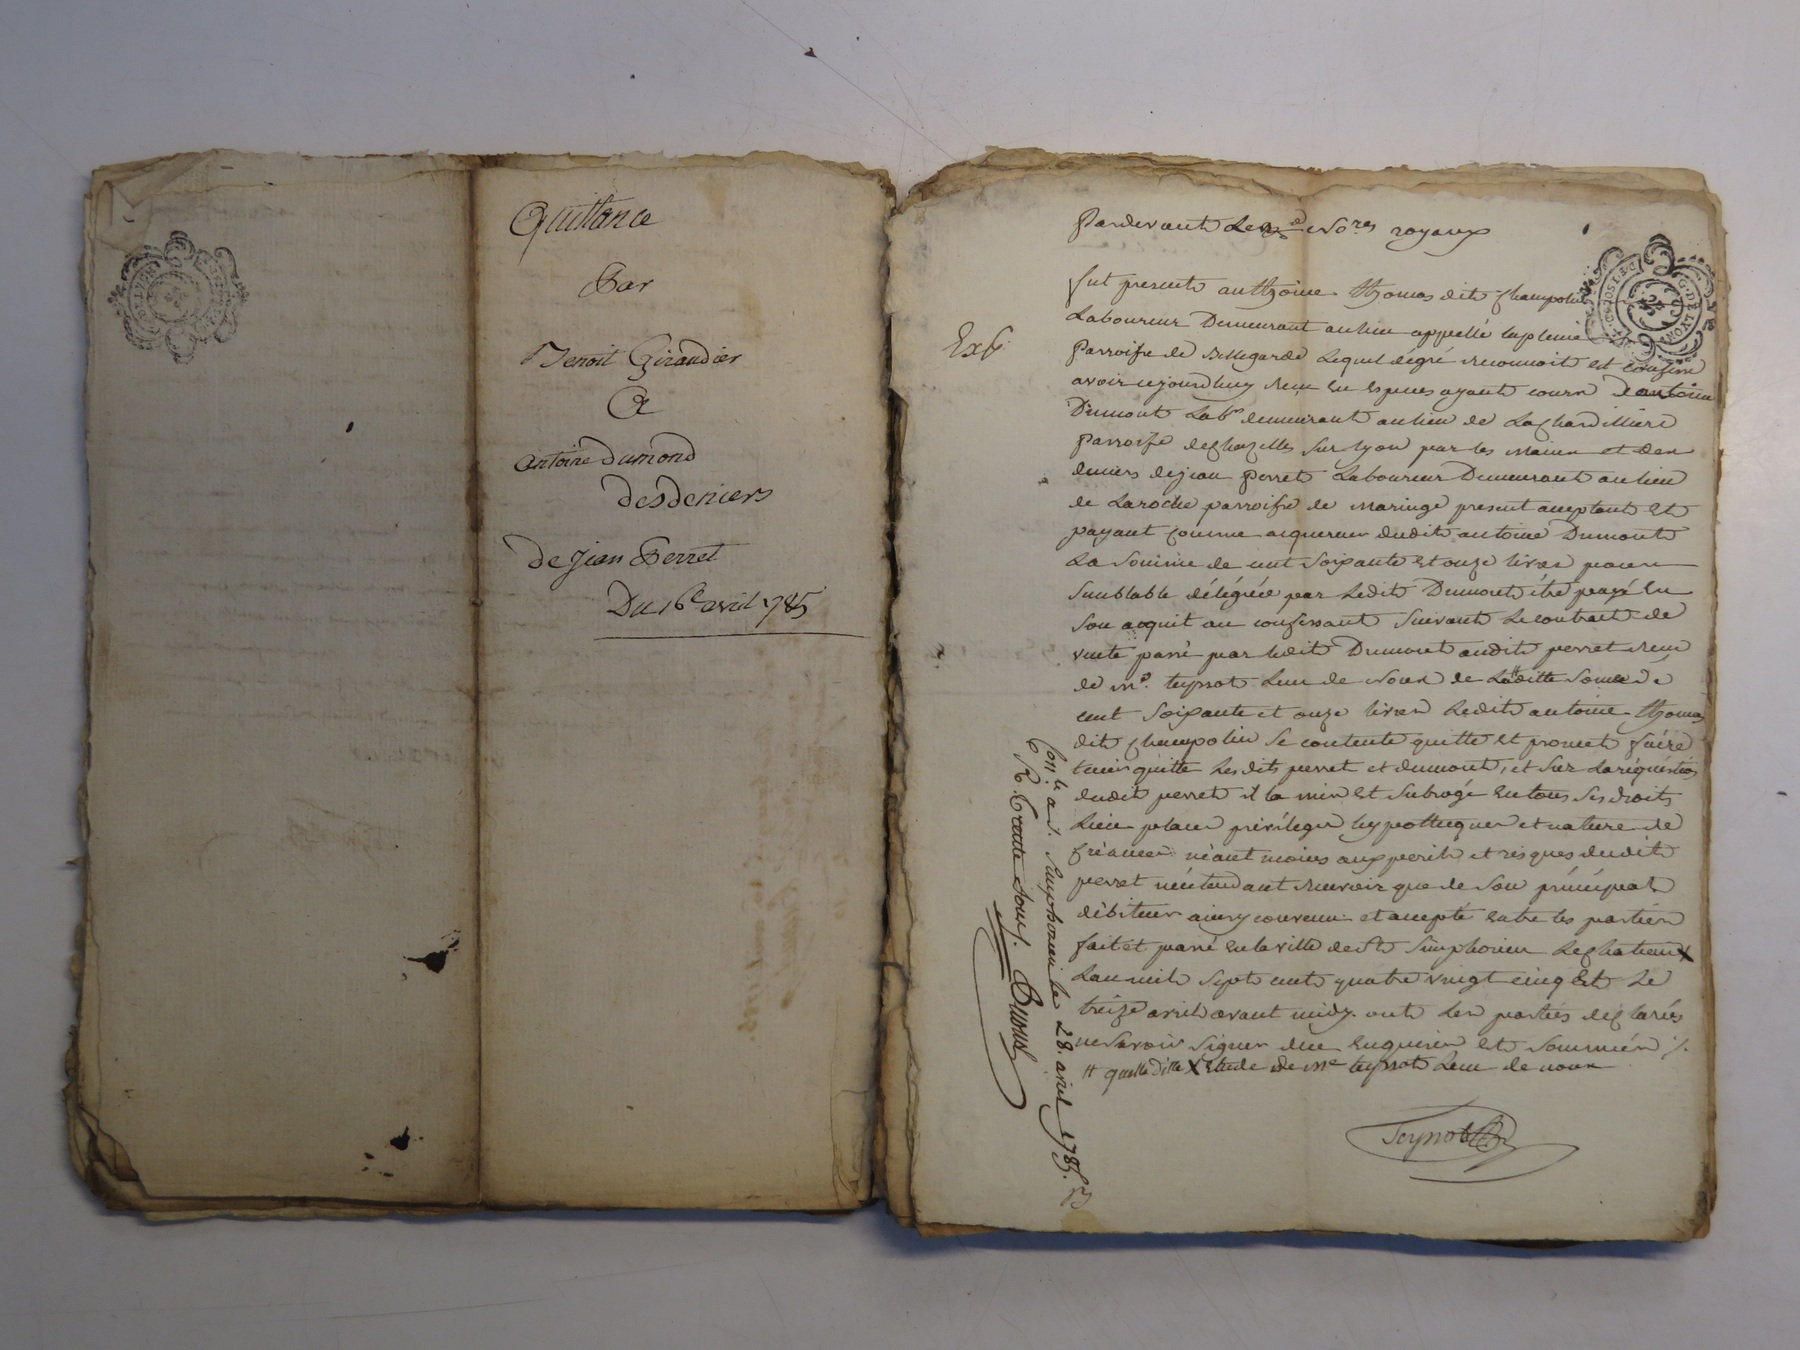 Quittance
Par
Benoit Giraudier
A
Antoine dumond
des deniers
de Jean Perret
Du 16e avril 1785
Pardevant Les Nores royaux
fut present anthoine thomas dit champolin
Laboureur Demeurant au lieu appellé
Parroisse de Bellegarde Lequel de gré reconnoit et confesse
avoir cejourdhuy reçu en espèces ayant cours d'antoine
Dumont Labr demeurant au lieu de La chardilliere
Parroisse de chazelles sur lyon par les mains et des
deniers de jean perret Laboureur Demeurant au lieu
de Laroche parroisse de maringe present acceptant et
payant comme acquereur dudit antoine Dumont
La somme de cent soixante et onze livres pour
semblable déléguée par Ledit Dumont être payé en
son acquit au confessant suivant Le contrat de
vente passé par ledit Dumont audit perret reçu
de me. teyssot L'un de nous de Laditte somme de
cent soixante et onze livres Ledit antoine thomas
dit champolin se contente quitte et promet faire
tenir quitte Lesdits perret et dumont, et sur La réquisition
dudit perret il la mis et subrogé en tous ses droits
Lieu places privileges hypotheques et nature de
créances néantmoins aux perils et risques dudit
perret n'entendant recevoir que de son principal
débiteur ainsy convenu et accepté entre les parties
fait et passé en la ville de St Simphorien Le chateau X
L'an mil sept cent quatre vingt cinq et Le
treize avril avant midy. ont Les parties declarés
ne savoir signer de ce enquises et sommées /.
# quelle ditte X Etude de me teyssot L'un de nous
Teyssot
Exp.
Con.le a S. Simphorien le 28. avril 1785.
R. trente sous.
DE LYON